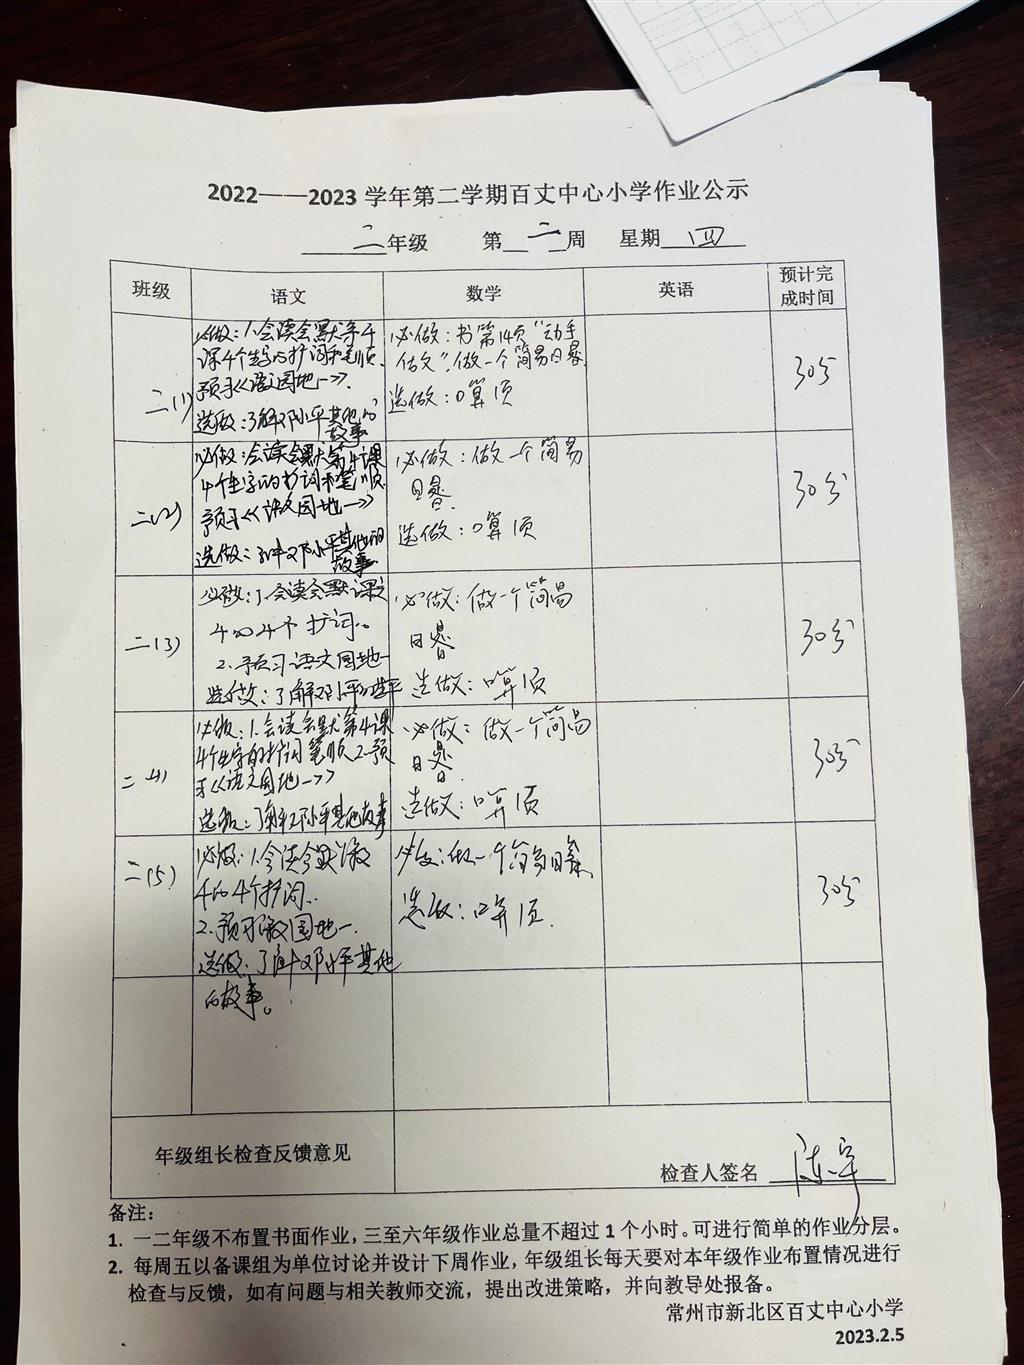 2022——2023 学年第二学期百丈中心小学作业公示
二年级 第二周 星期四
班级 语文 数学 英语 预计完成时间
二(1)
必做：1.会读会默写4
课4个生字的扩词和笔顺.
预习《语文园地一》.
选做：了解邓小平其他的
故事
必做：书第14页“动手
做做”，做一个简易日晷.
选做：口算1页
30分
二(2)
必做：会读会默第4课
4个生字的扩词和笔顺.
预习《语文园地一》
选做：了解邓小平其他的
故事
必做：做一个简易
日晷.
选做：口算1页
30分
二(3)
必做：1.会读会默课文
4的4个扩词。
2.预习语文园地一
选做：了解邓小平的
必做：做一个简易
日晷
选做：口算1页
30分
二(4)
必做：1.会读会默第4课
4个生字的扩词笔顺 2.预
习《语文园地一》
选做：了解邓小平其他故事
必做：做一个简易
日晷.
选做：口算1页
30分
二(5)
必做：1.会读会默课文
4的4个扩词.
2.预习语文园地一.
选做：了解邓小平其他
的故事。
必做：做一个简易日晷.
选做：口算1页.
30分
年级组长检查反馈意见
检查人签名
备注：
1. 一二年级不布置书面作业，三至六年级作业总量不超过 1 个小时。可进行简单的作业分层。
2. 每周五以备课组为单位讨论并设计下周作业，年级组长每天要对本年级作业布置情况进行
检查与反馈，如有问题与相关教师交流，提出改进策略，并向教导处报备。
常州市新北区百丈中心小学
2023.2.5